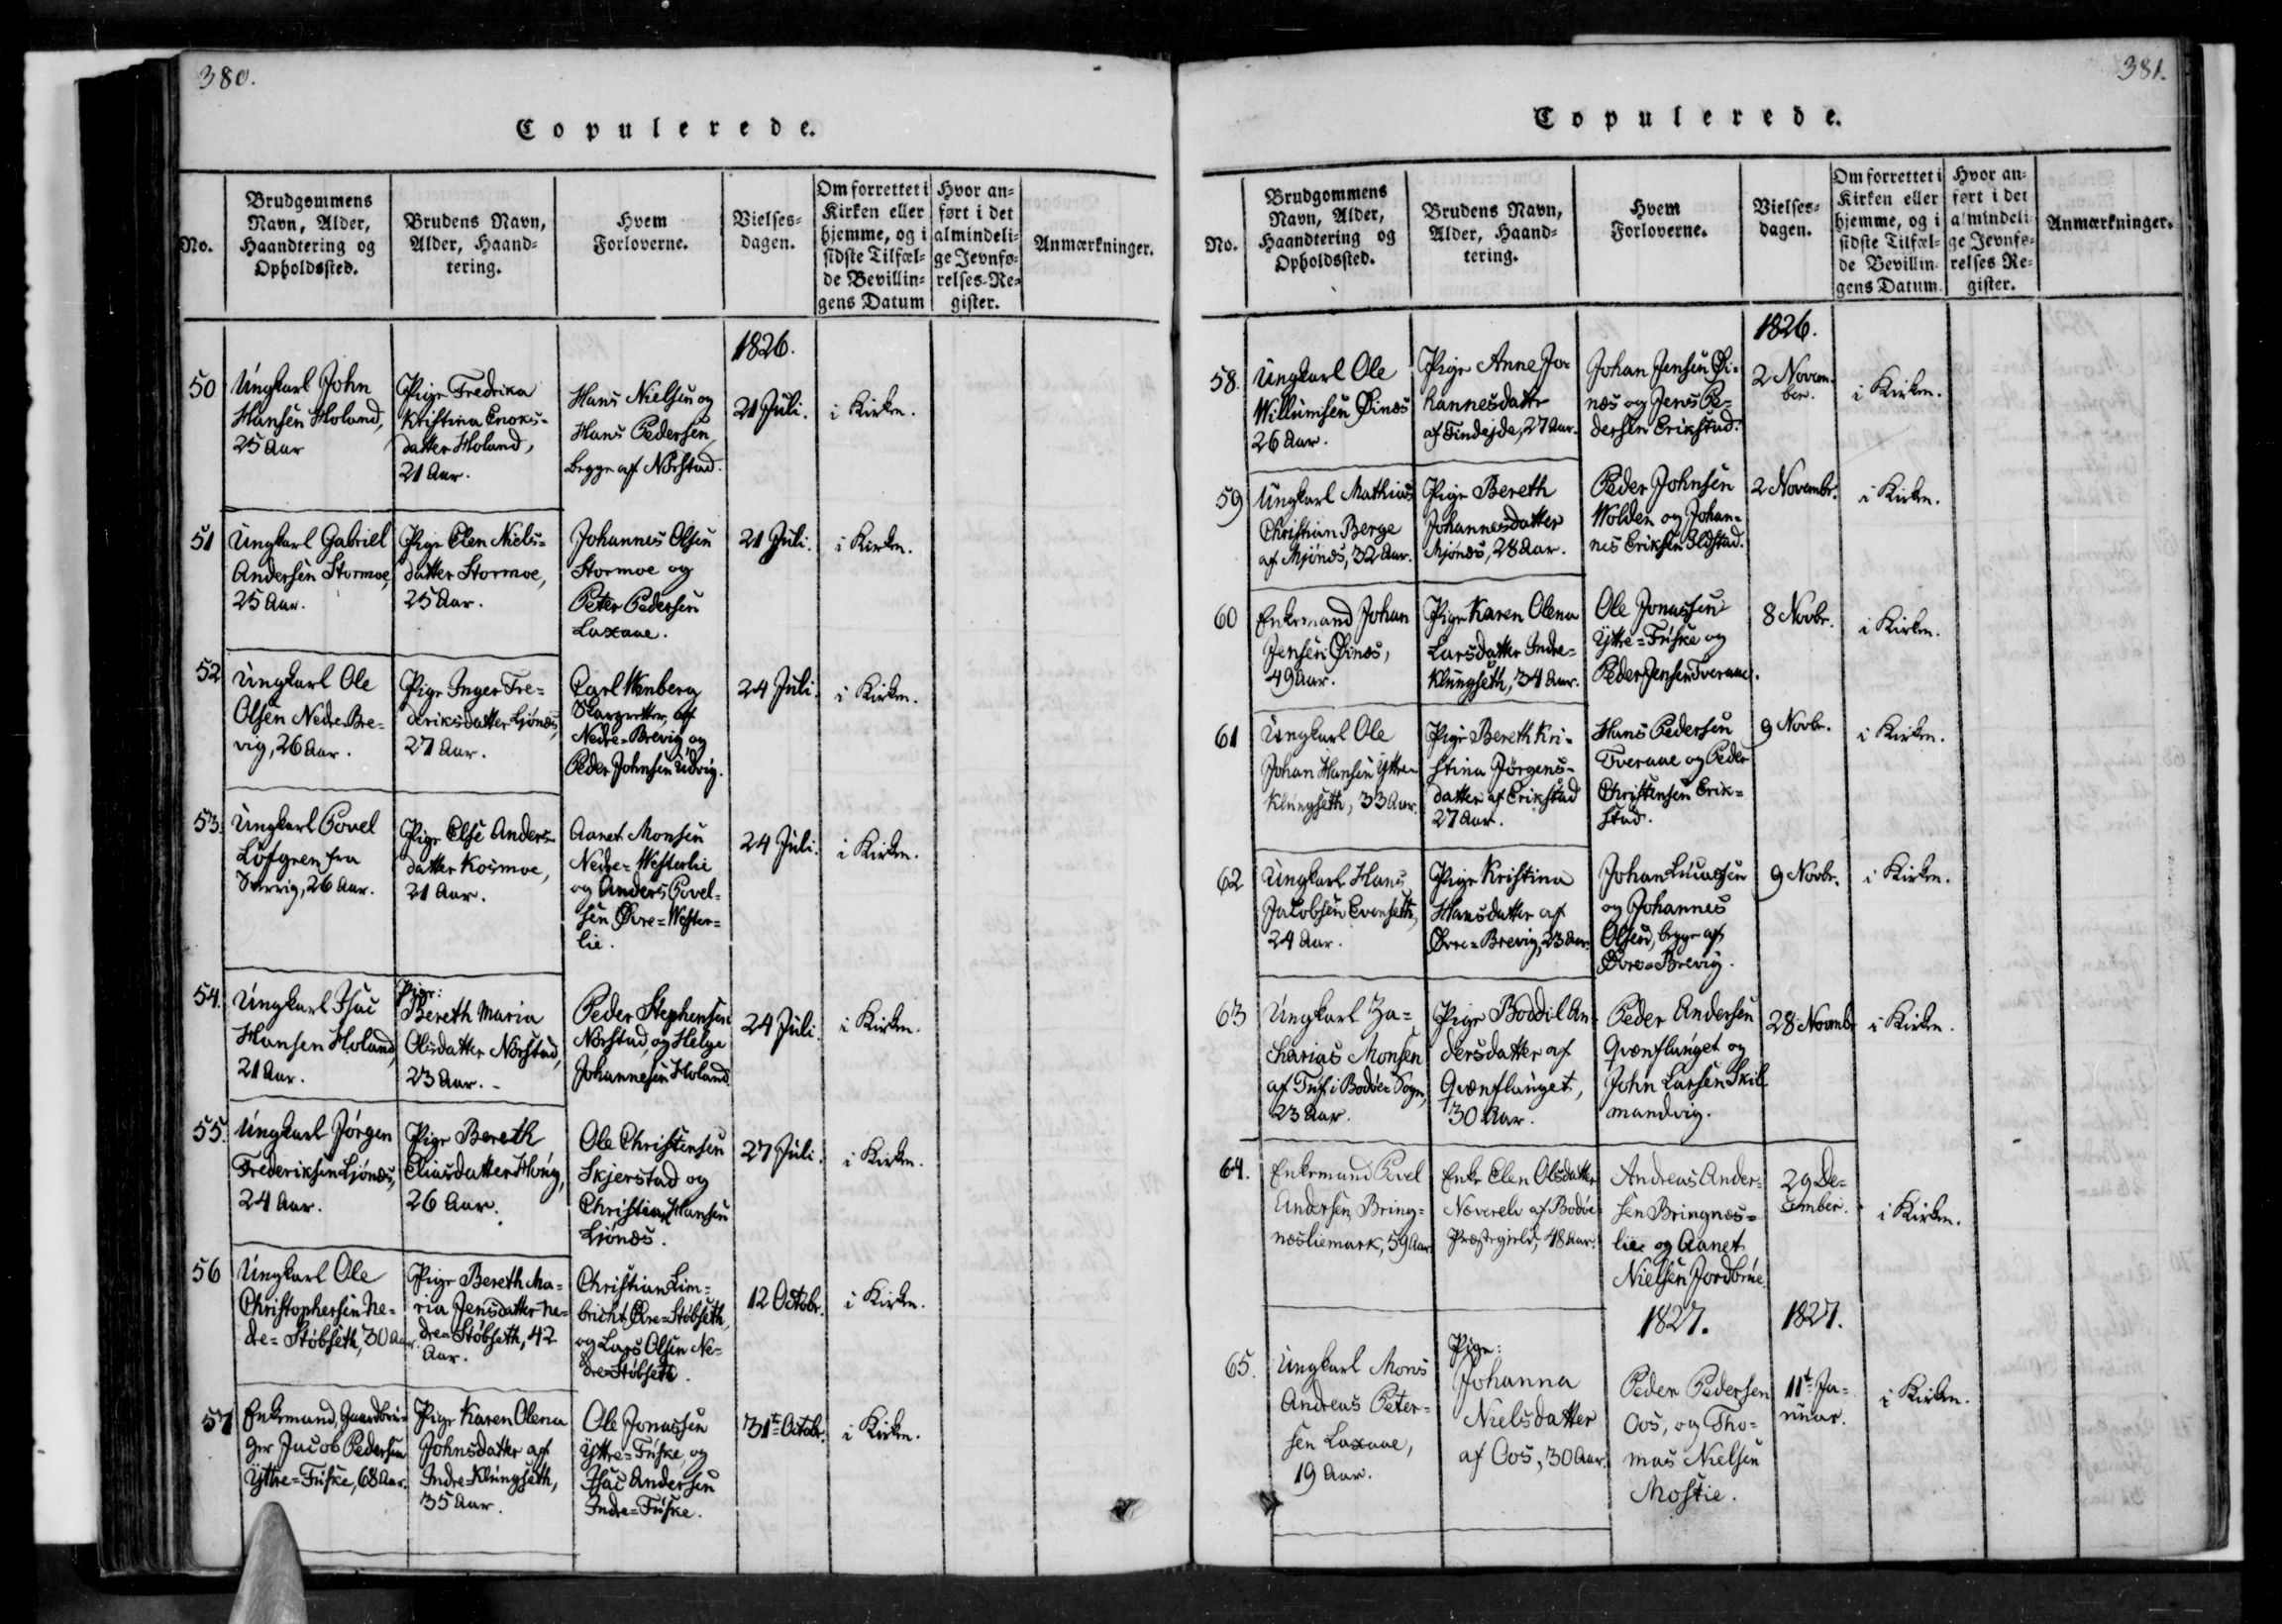 380.
Copulerede.
No.
Brudgommens
Navn, Alder,
Haandtering og
Opholdssted.
Brudens Navn,
Alder, Haand-
tering.
Hvem
Forloverne.
Vielses-
dagen.
Om forrettet i
Kirken eller
hjemme, og i
sidste Tilfæl-
de Bevillin-
gens Datum
Hvor an-
ført i det
almindeli-
ge Jevnfø-
relses-Re-
gister.
Anmærkninger.
1826.
50
Ungkarl John
Hansen Holand,
25 Aar
Pige Fredrika
Kristina Enoks-
datter Holand,
21 Aar.
Hans Nielsen og
Hans Pedersen,
begge af Nørstad.
21 Juli.
i Kirken.
51
Ungkarl Gabriel
Andersen Stormoe,
25 Aar.
Pige Elen Niels-
datter Stormoe,
25 Aar.
Johannes Olsen
Stormoe og
Peter Pedersen
Laxaae.
21 Juli.
i Kirken.
52
Ungkarl Ole
Olsen Nedre-Bre-
vig, 26 Aar.
Pige Inger Fre-
deriksdatter Ljønæs,
27 Aar.
Carl Wenberg
af
Nedre-Brevig og
Peder Johnsen Udvig.
24 Juli.
i Kirken.
53.
Ungkarl Povel
Löfgren fra
Sverrig, 26 Aar.
Pige Else Anders-
datter Kosmoe,
21 Aar.
Aanet Monsen
Nedre-Westerlie
og Anders Povel-
sen Øvre-Wester-
lie.
24 Juli.
i Kirken.
54.
Ungkarl Isac
Hansen Holand
21 Aar.
Pige:
Bereth Maria
Olsdatter Nørstad,
23 Aar. -
Peder Stephensen
Nørstad, og Helge
Johannesen Holand.
24 Juli.
i Kirken.
55.
Ungkarl Jørgen
Frederiksen Ljønæs,
24 Aar.
Pige Bereth
Eliasdatter Høng,
26 Aar.
Ole Christensen
Skjerstad og
Christian Hansen
Ljønæs.
27 Juli.
i Kirken.
56
Ungkarl Ole
Christophersen Ne-
dre-Støbseth, 30 Aar.
Pige Bereth Ma-
ria Jensdatter Ne-
dre-Støbseth, 42
Aar.
Christian Lim-
bricht Øvre-Støbseth,
og Lars Olsen Ne-
dre-Støbseth.
12 Octobr.
i Kirken.
57
Enkemand, Gaardbru-
ger Jacob Pedersen
Yttre-Fuske, 68 Aar.
Pige Karen Olena
Johnsdatter af
Indre-Klungseth,
35 Aar.
Ole Jonassen
Yttre-Fuske, og
Isac Andersen
Indre-Fuske.
31te Octobr.
i Kirken.
381.
Copulerede.
No.
Brudgommens
Navn, Alder,
Haandtering og
Opholdssted.
Brudens Navn,
Alder, Haand-
tering.
Hvem
Forloverne.
Vielses-
dagen.
Om forrettet i
Kirken eller
hjemme, og i
sidste Tilfæl-
de Bevillin-
gens Datum.
Hvor an-
ført i det
almindeli-
ge Jevnfø-
relses Re-
gister.
Anmærkninger.
1826.
58.
Ungkarl Ole
Willumsen Øinæs
26 Aar.
Pige Anne Jo-
hannesdatter
af Findejde, 27 Aar.
Johan Jensen Øi-
næs og Jens Pe-
dersen Erikstad.
2 Novem-
ber.
i Kirken.
59
Ungkarl Mathias
Christian Berge
af Mjønæs, 32 Aar.
Pige Bereth
Johannesdatter
Mjønæs, 28 Aar.
Peder Johnsen
Wolden og Johan-
nes Eriksen Ildstad.
2 Novembr.
i Kirken.
60
Enkemand Johan
Jensen Øinæs,
49 Aar.
Pige Karen Olena
Larsdatter Indre-
Klungseth, 34 Aar.
Ole Jonassen
Yttre-Fuske og
Peder Jensen Tveraae.
8 Novbr.
i Kirken.
61
Ungkarl Ole
Johan Hansen Yttre-
Klungseth, 33 Aar.
Pige Bereth Kri-
stina Jørgens-
datter af Erikstad
27 Aar.
Hans Pedersen
Tveraae og Peder
Christensen Erik-
stad.
9 Novbr.
i Kirken.
62
Ungkarl Hans
Jacobsen Evenseth,
24 Aar.
Pige Kristina
Hansdatter af
Øvre-Brevig, 23 Aar.
Johan Lucassen
og Johannes
Olsen, begge af
Øvre-Brevig.
9 Novbr.
i Kirken.
63
Ungkarl Za-
charias Monsen
af i Bodøe Sogn,
23 Aar.
Pige Boddil An-
dersdatter af
Qvænflaaget,
30 Aar.
Peder Andersen
Qvænflaaget og
John Larsen Skil
mandvig.
28 Novembr
i Kirken.
64.
Enkemand Povel
Andersen Bring-
næsliemark, 59 Aar
Enke Elen Olsdatter
Næverelv af Bodøe
Præstegield, 48 Aar.
Andreas Ander-
sen Bringnæs-
lie og Aanet
Nielsen Jordbrue.
29 De-
cember.
i Kirken.
1827.
1827.
65.
Ungkarl Mons
Andreas Peter-
sen Laxaae,
19 Aar.
Pige:
Johanna
Nielsdatter
af Oos, 30 Aar.
Peder Pedersen
Oos, og Tho-
mas Nielsen
Mostie.
11te Ja-
nuar.
i Kirken.